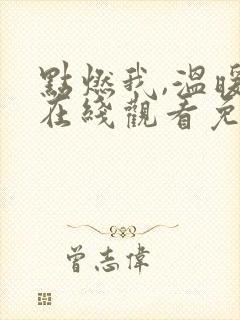 點燃我,溫暖
在綫觀看免
曾志偉